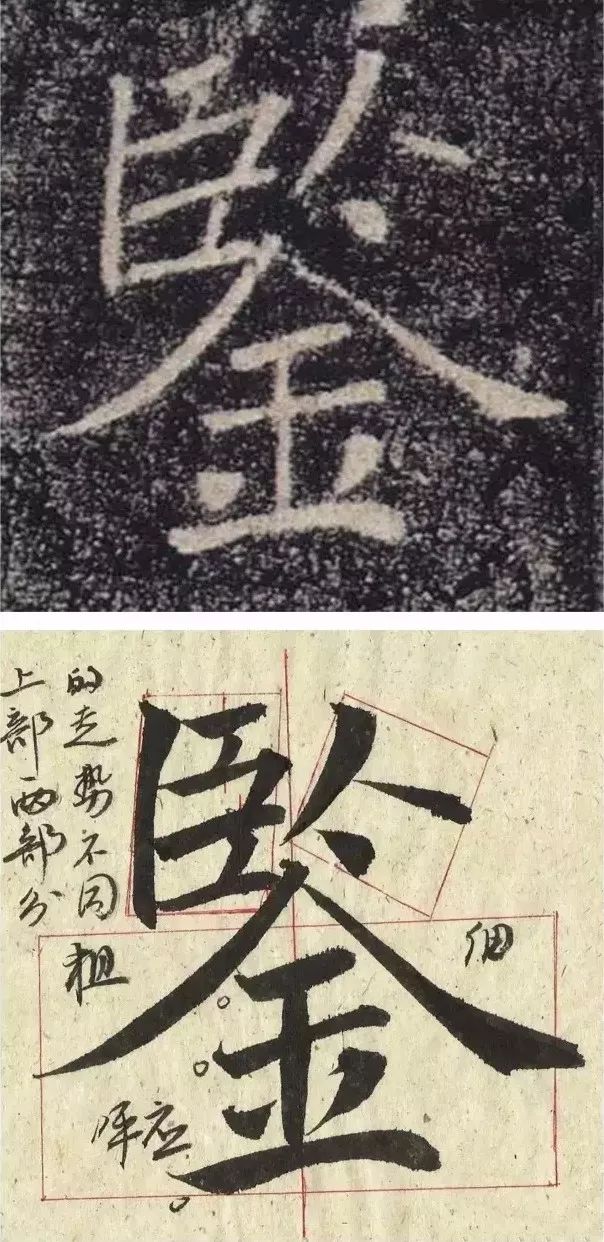 鍳
鍳
上部两部分
的走势不同
粗
细
呼应